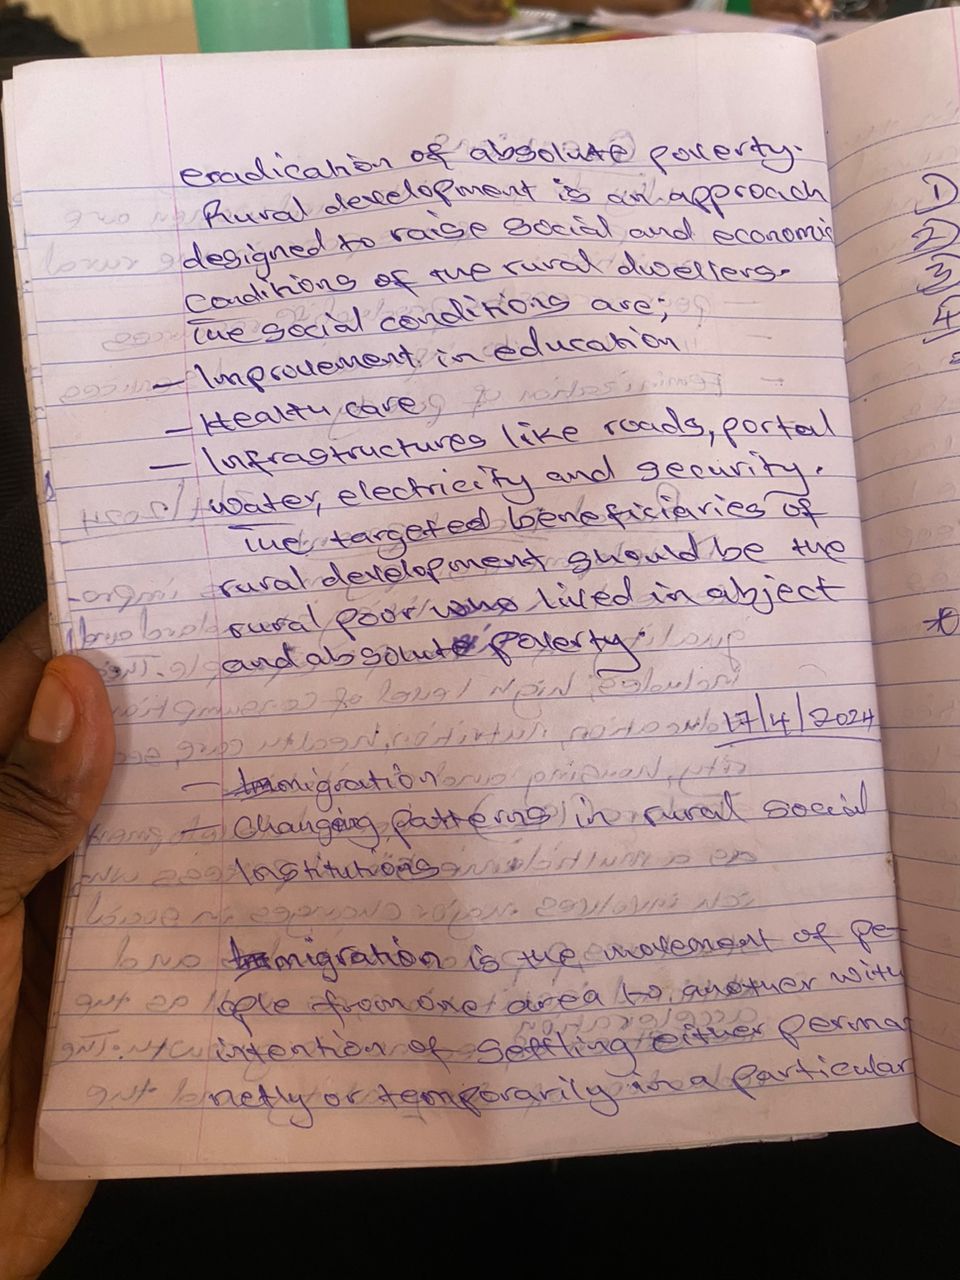 eradication of absolute poverty.
Rural development is an approach
designed to raise social and economic
conditions of the rural dwellers.
The social conditions are;
- Improvement in education
- Health care
- Infrastructures like roads, portal
water, electricity and security.
The targeted beneficiaries of
rural development should be the
rural poor who lived in abject
and absolute poverty.
17/4/2024
- migration
- Changing patterns in rural social
Institutions
migration is the movement of pe-
ople from one area to another with
intention of settling either perma
netly or temporarily in a particular
1)
2)
3)
4